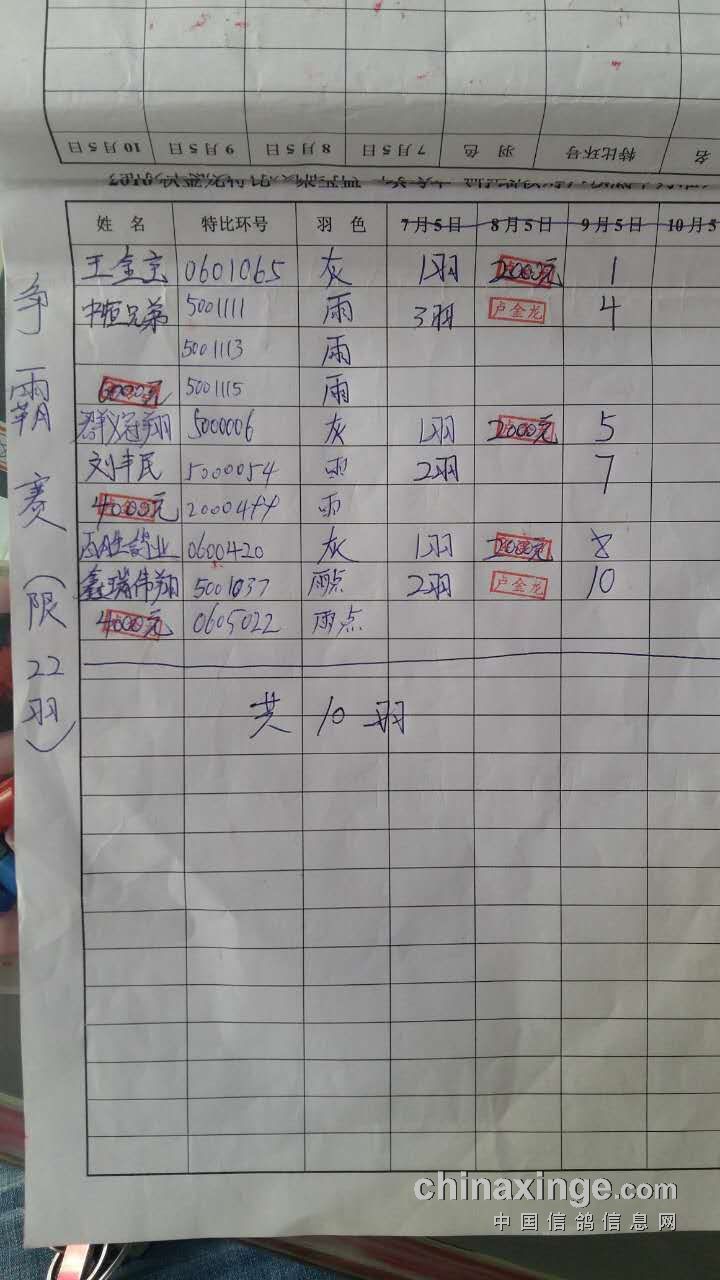 10月5日 9月5日 8月5日 7月5日 羽 色 特比环号 名
争霸赛(限22羽)
姓 名 特比环号 羽 色 7月5日 8月5日 9月5日 10月5
王金京 0601065 灰 1羽 2000元 1
中恒兄弟 5001111 雨 3羽 卢金龙 4
5001113 雨
6000元 5001115 雨
群义冠翔 5000006 灰 1羽 2000元 5
刘丰民 5000054 雨 2羽 7
4000元 20004 雨
0600420 灰 1羽 2000元 8
鑫瑞伟翔 5001037 雨点 2羽 卢金龙 10
4000元 0605022 雨点
共10羽
chinaxinge.com
中国信鸽信息网